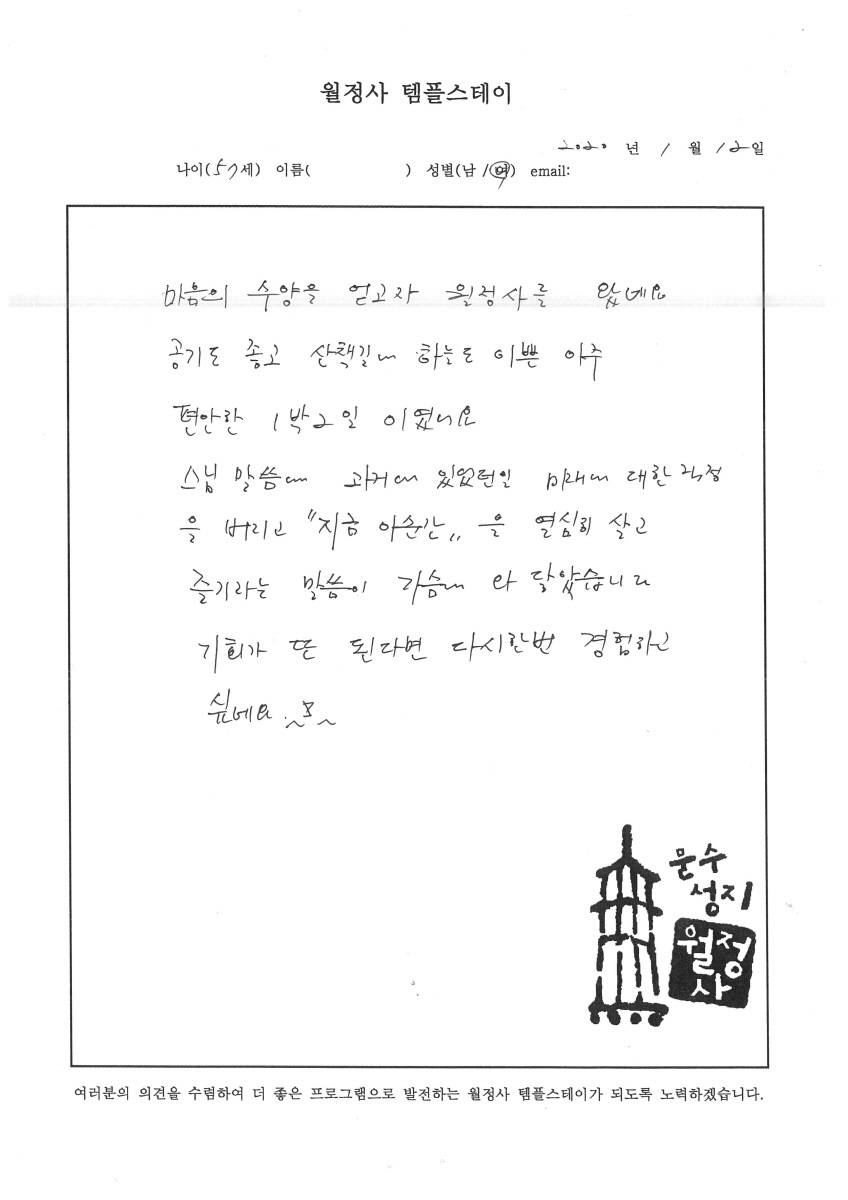 월정사 템플스테이
2020 년 1 월 12일
나이(57세) 이름( ) 성별(남 /여) email:
마음의 수양을 얻고자 월정사를 왔네요
공기도 좋고 산책길에 하늘도 이쁜 아주
편안한 1박2일 이였네요
스님 말씀에 과거에 있었던일 미래에 대한 걱정
을 버리고 "지금 이순간„ 을 열심히 살고
즐기라는 말씀이 가슴에 와 닿았습니다
기회가 또 된다면 다시한번 경험하고
싶네요
문수
성지
월정
사
여러분의 의견을 수렴하여 더 좋은 프로그램으로 발전하는 월정사 템플스테이가 되도록 노력하겠습니다.